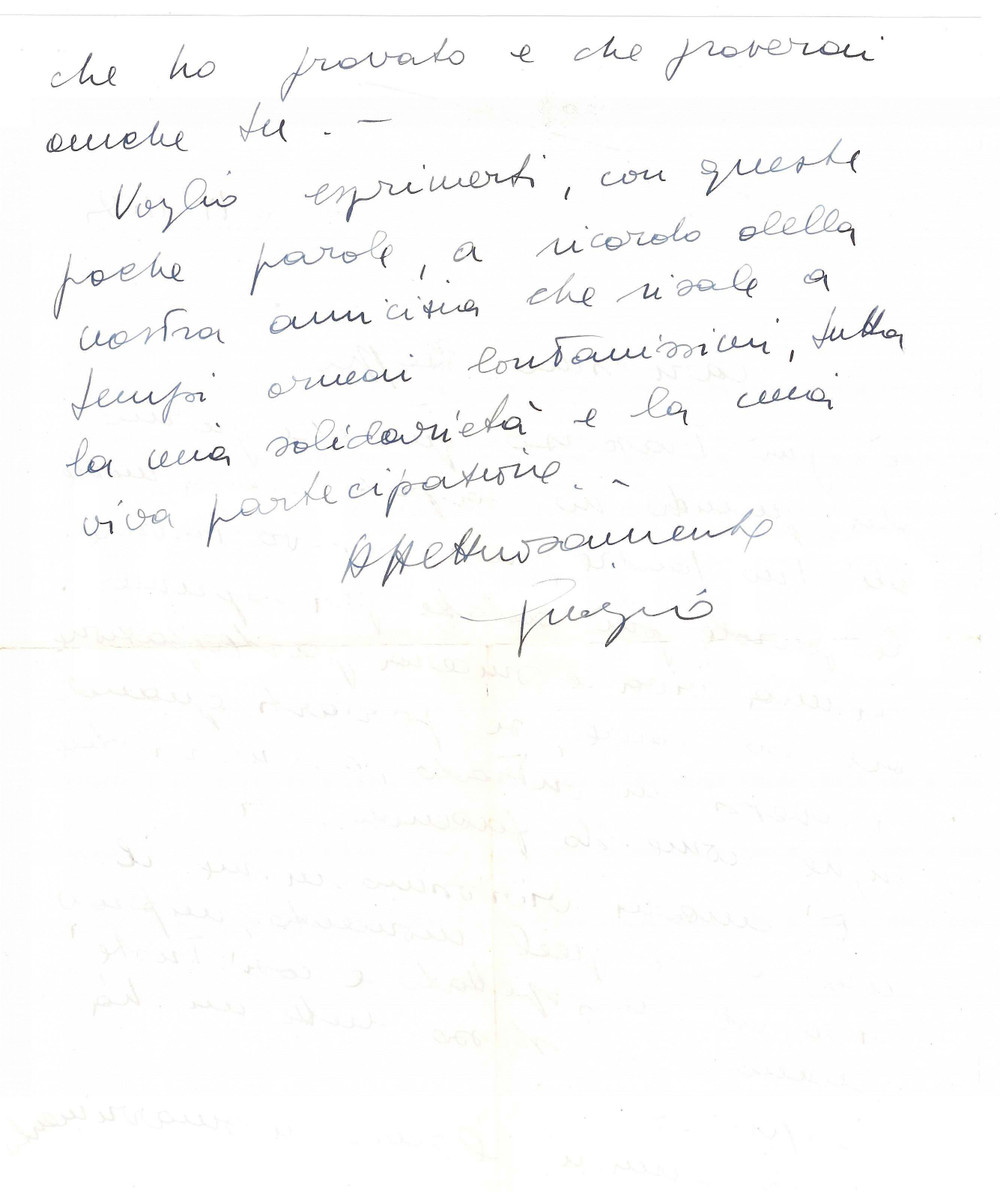 che ho provato e che proverai
anche tu . –
Voglio esprimerti, con queste
poche parole, a ricordo della
nostra amicizia che risale a
tempi ormai lontanissimi, tutta
la mia solidarietà e la mia
viva partecipazione. –
Affettuosamente